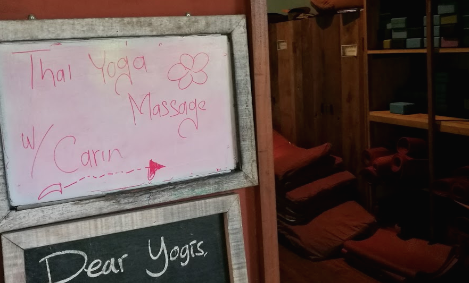 Thai Yoga
Massage
w/ Carin
Dear Yogis,